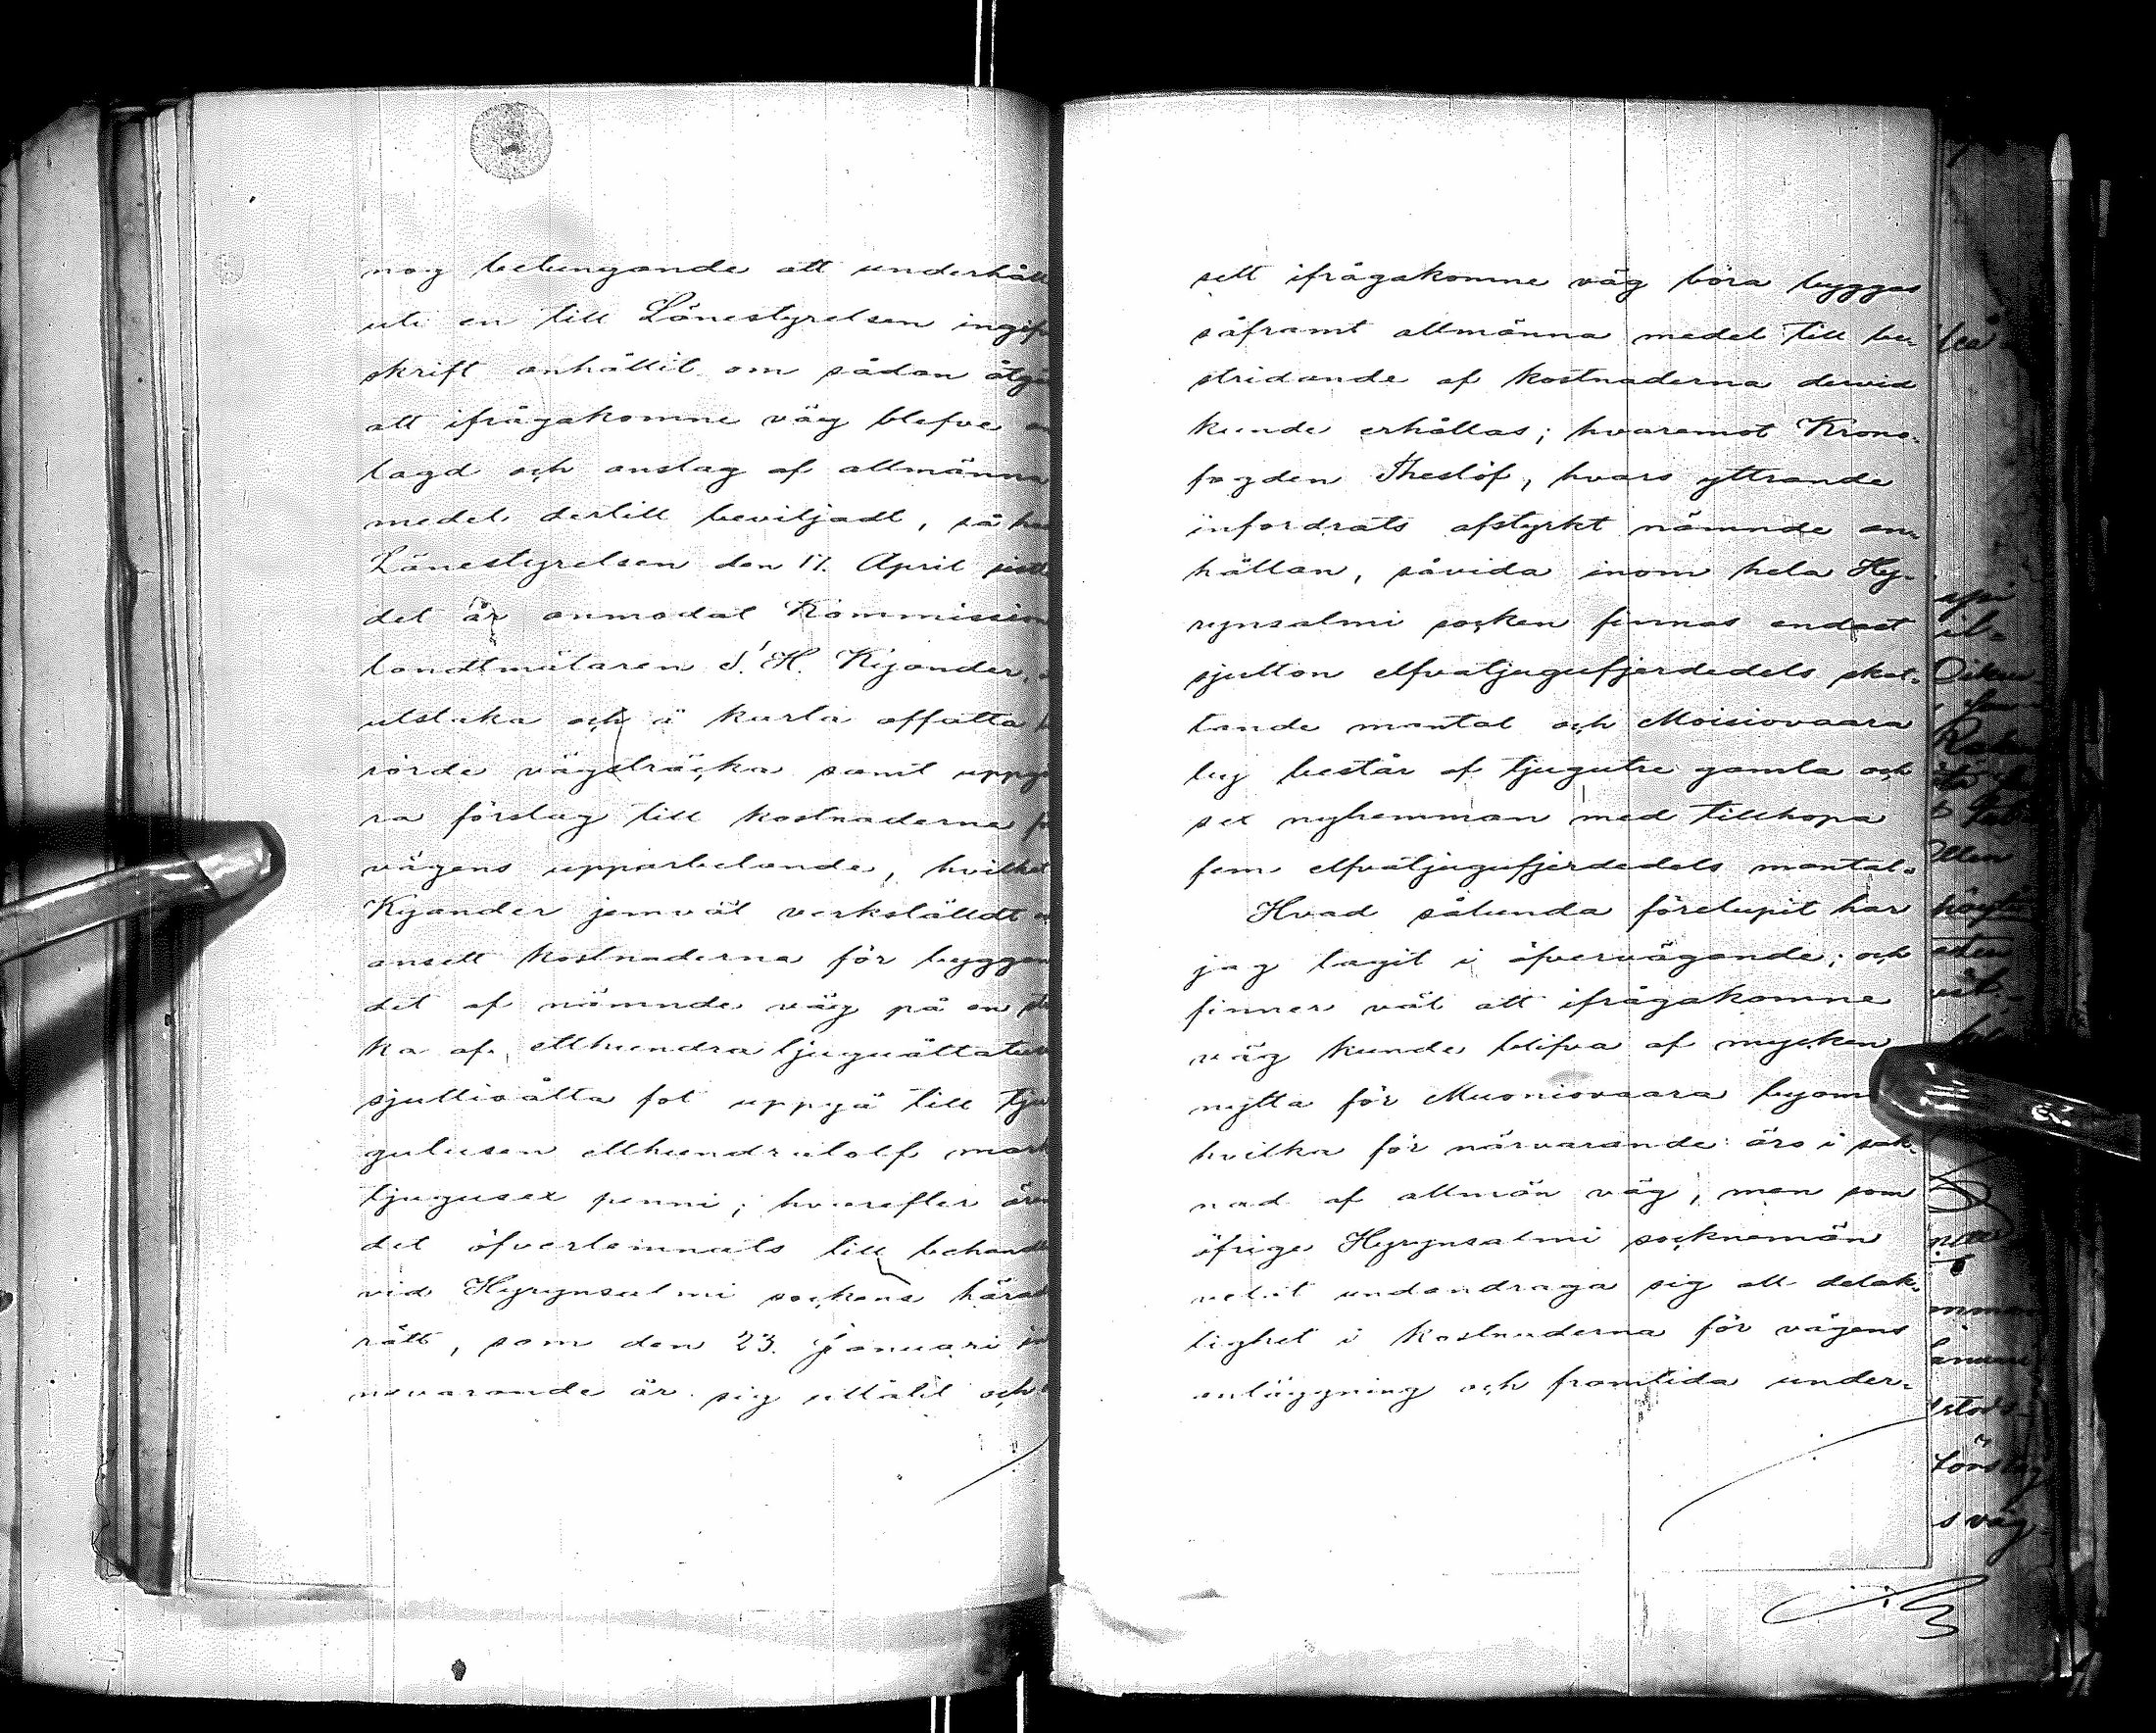 nog betungande att underhåll
uti en till Länestyrelsen ingif
skrift anhållit om sådan åtgä
att ifrågakomne väg blefve an
lagd och anslag af allmänna
medel dertill beviljadt, så ha
Länestyrelsen den 17. April sist
det år anmodat Kommission
landtmätaren J. H. Kyander,
utstaka och å karta affatta b
rörde vägsträcka samt uppgö
ra förslag till kostnaderna fö
vägens upparbetande, hvilket
Kyander jemväl verkställdt o
ansett kostnaderna för byggan
det af nämnde väg på en strä
ka af etthundratjuguåttatus
sjuttioåtta fot uppgå till tju
gutusen etthundratolf mark
tjugusex penni; hvarefter ären
det öfverlemnats till behand
vid Hyrynsalmi sockens härad
rätt, som den 23. Januari in
nevarande år sig utlåtit och
sett ifrågakomne väg böra byggas
såframt allmänna medel till be-
stridande af kostnaderna dervid
kunde erhållas; hvaremot Krono-
fogden Theslöf, hvars yttrande
infordrats afstyrkt nämnde an-
hållan, såvida inom hela Hy-
rynsalmi socken finnas endast
sjutton elfvatjugufjerdedels skat-
tande mantal och Moisiovaara
by består af tjugutre gamla och
sex nyhemman med tillhopa
fem elfvatjugufjerdedels mantal.
Hvad sålunda förelupit har
jag tagit i öfvervägande; och
finner väl att ifrågakomne
väg kunde blifva af mycken
nytta för Muoniovaara byom
hvilka för närvarande äro i sak-
nad af allmän väg, men som
öfrige Hyrynsalmi socknemän
velat undandraga sig all delak-
tighet i kostnaderna för vägens
anläggning och framtida under-